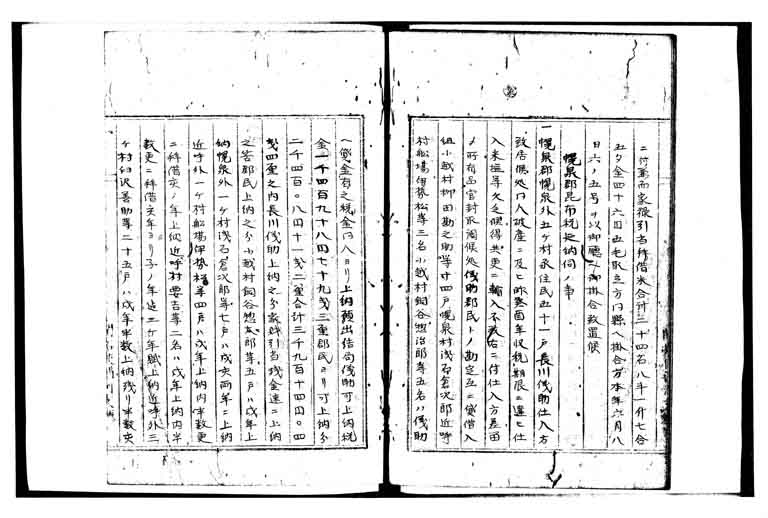 ニ付蔦而家族引当拝借米合計三十四石八斗一升七合
五夕金四十六円五毛取立方門縣ヘ掛合方本年六月八
日六ノ五号ヲ以御聴ニ御掛合致置候
幌泉郡昆布税延納伺ノ事
一幌泉郡幌泉外五ケ村永住民五十一戸長川儀助仕入方
致居候処同人破産ニ及ヒ昨癸酉年収税期限ニ違ヒ仕
入米塩等欠乏候得共更ニ輸入不致右ニ付仕入方差困
メ所有品官封承候処儀助郡民トノ勘定互ニ貸借入
組小越村柳田勘之助等廿四戸幌泉村浅石倉次郎近呼
村船場伊勢松等三名小越村飼谷惣治郎等五名ハ儀助
ヘ貸金有之税金同人ヨリ上納願出結局儀助可上納税
金一千四百九十八円七十九銭三厘郡民ヨリ可上納分
二千四百〇八円十一銭二厘合計三千九百十四円〇四
銭四厘之内長川儀助上納之分家財引当残金速ニ上納
之答郡民上納之分小越村飼谷惣太郎等五戸ハ戌年上
納幌泉外一ケ村浅石倉次郎等七戸ハ戌亥両年ニ上納
近呼外一ケ村船場伊勢松等四戸ハ戌年上納内半数更
ニ拝借亥ノ年上納近呼村 要吉等二名ハ戌年上納内半
数更ニ拝借亥年ヨリ子ノ年迄二ケ年賦上納近呼外三
ケ村幻沢善助等二十五戸ハ戌年半数上納残リ半数亥